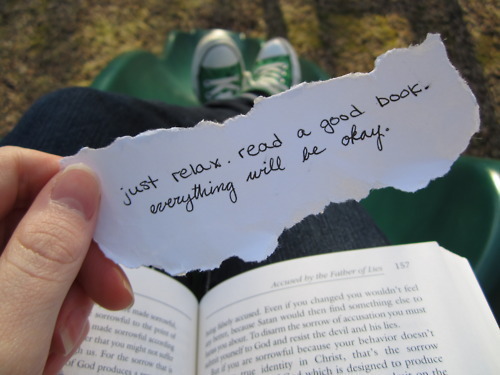 just relax. read a good book.
everything will be okay.
Accused by the Father of Lies 157
falsely accused. Even if you changed you wouldn't feel
better, because Satan would then find something else to
accuse you about. To disarm the sorrow of accusation you must
submit yourself to God and resist the devil and his lies.
But if you are sorrowful because your behavior doesn't
true identity in Christ, that's the sorrow
of God which is designed to produce
made sorrowful,
sorrowful to the point of
made sorrowful according
that you might not suffer
us. For the sorrow that is
of God produces